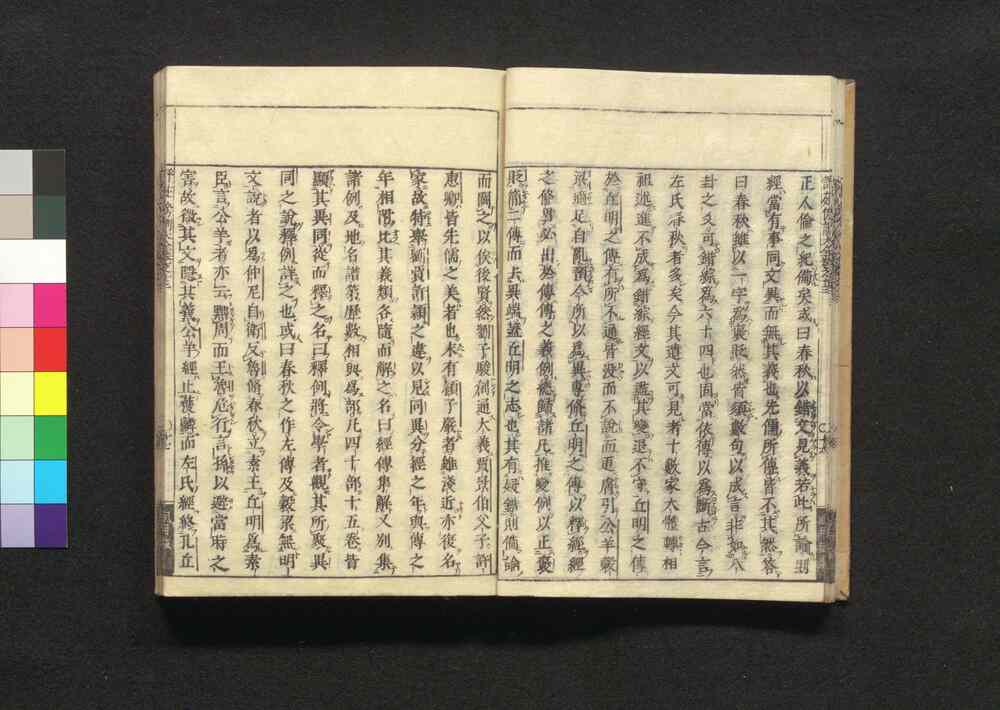 正人倫之紀備矣或曰春秋以錯文見義若此所論則
經當有事同文異而無其義也先儒所傳皆不其然答
曰春秋雖以一字爲襃貶然皆須數句以成言非如八
卦之爻可錯綜爲六十四也固當依傳以爲斷古今言
左氏春秋者多矣今其遺文可見者十數家大體轉相
祖述進不成爲錯綜經文以盡其變退不守丘明之傳
於丘明之傳有所不通皆沒而不說而更膚引公羊穀
梁適足自亂預今所以爲異專脩丘明之傳以釋經經
之條貫必出於傳傳之義例總歸諸凡推變例以正襃
貶簡二傳而去異端蓋丘明之志也其有疑錯則備論
而闕之以俟後賢然劉子駿創通大義賈景伯父子許
惠卿皆先儒之美者也末有潁子嚴者雖淺近亦復名
家故特舉劉賈許潁之違以見同異分經之年與傳之
年相附比其義類各隨而解之名曰經傳集解又別集
諸例及地名譜第歷數相與爲部凡四十部十五卷皆
顯其異同從而釋之名曰釋例將令學者觀其所聚異
同之說釋例詳之也或曰春秋之作左傳及穀梁無明
文說者以爲仲尼自衛反魯脩春秋立素王丘明爲素
臣言公羊者亦云黜周而王魯危行言孫以避當時之
害故微其文隱其義公羊經止獲麟而左氏經終孔丘